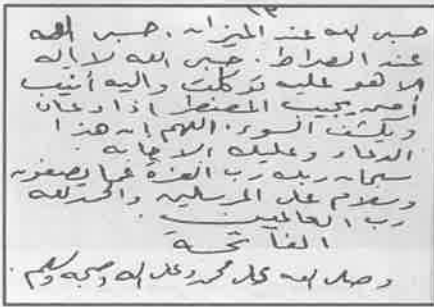 ١٣
حسبي الله عند الميزان . حسبي الله
عند الصراط . حسبي الله لا إله
إلا هو عليه توكلت وإليه أنيب
أمن يجيب المضطر إذا دعاه
ويكشف السوء . اللهم إن هذا
الدعاء وعليك الإجابة
سبحان ربك رب العزة عما يصفون
وسلام على المرسلين والحمد لله
رب العالمين .
الفاتحة
وصلى الله على محمد وعلى آله وصحبه وسلم .